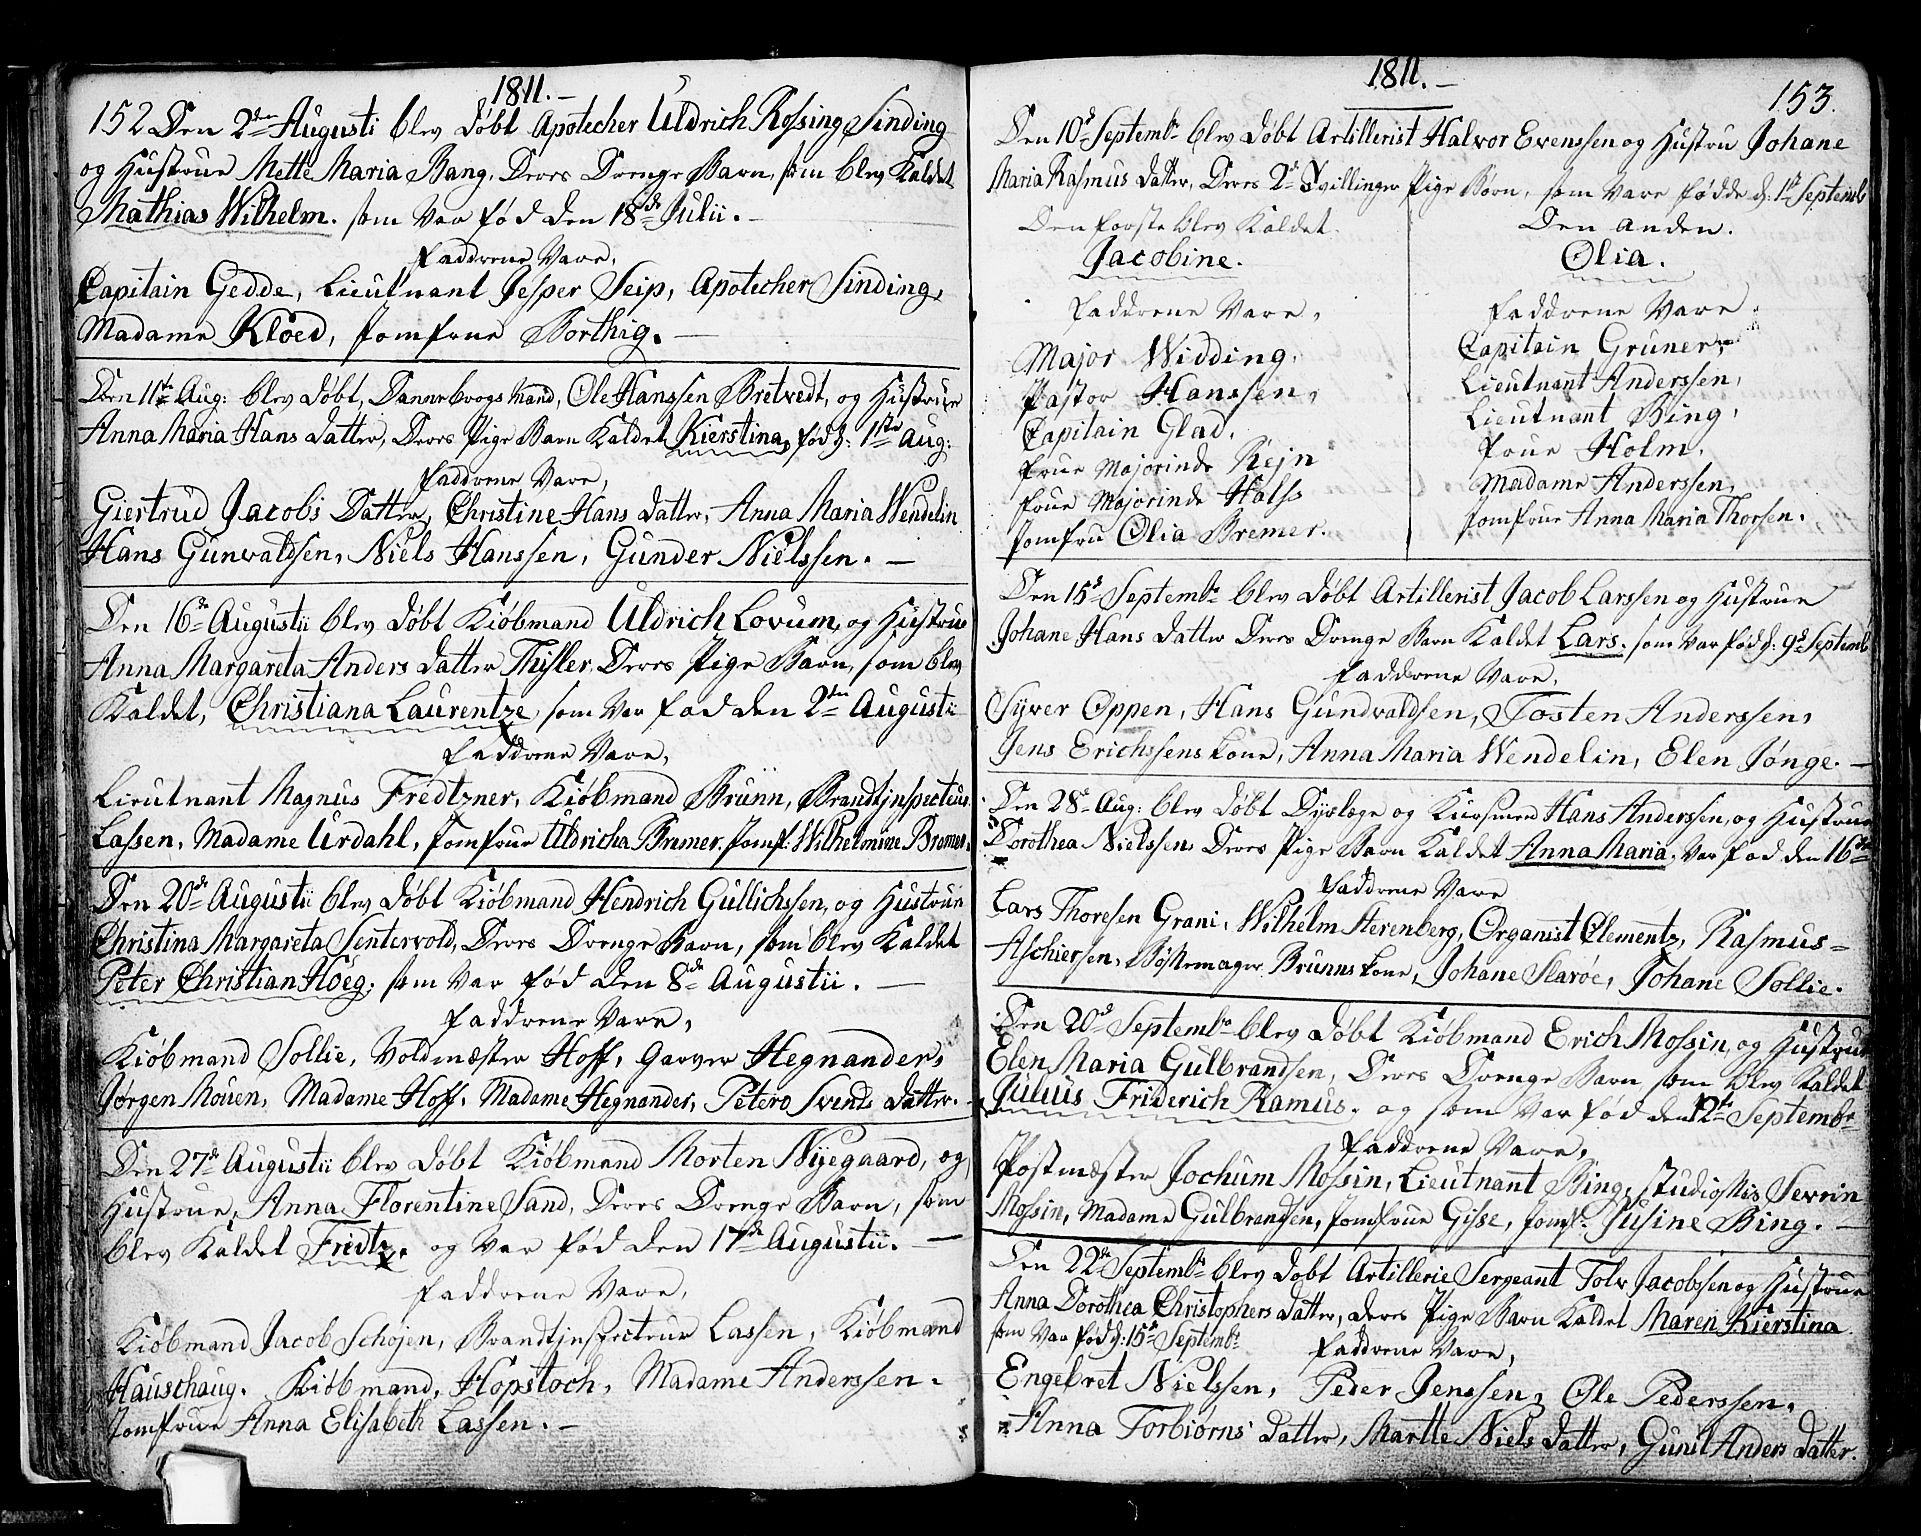 1811.
152 Den 2de Augusti blev døbt Apotecher Uldrich Rossing Sinding
og Hustrue Mette Maria Bang, Deres Drenge Barn, som blev Kaldet
Mathias Wilhelm. som Var fød den 18de Julii.
Faddrene Vare,
Capitain Gedde, Lieutnant Jesper Seip, Apotecher Sinding,
Madame Kloed, Jomfrue Borthig.
Den 11te Aug: blev døbt, Dannebrogs Mand, Ole Hanssen Bretvedt, og Hustrue
Anna Maria Hans datter, Deres Pige Barn Kaldet Kierstina, fød d: 1ste Aug:
Faddrene Vare,
Giertrud Jacobs Datter, Christine Hans datter, Anna Maria Wendelin
Hans Gunwaldsen, Niels Hanssen, Gunder Nielssen.
Den 16de Augustii blev døbt Kiøbmand Uldrich Lovum, og Hustrue
Anna Margareta Anders datter Thysler, Deres Pige Barn, som blev
Kaldet, Christiana Laurentze, som Var fød den 2den Augustii
Faddrene Vare,
Lieutnant Magnus Fredtzner, Kiøbmand Brunn, Brandtjnspecteur
Lassen, Madame Urdahl, Jomfrue Uldricha Bremer, Jomf: Wilhelmine Bremer.
Den 20de Augustii blev døbt Kiøbmand Hendrich Gullichssen, og Hustrue
Christina Margareta Sentervold, Deres Drenge Barn, som blev Kaldet
Peter Christian Høeg. som Var fød den 8de Augustii.
Faddrene Vare,
Kiøbmand Sollie, Voldmæster Hoff, Garver Hegnander,
Jørgen Mouen, Madame Hoff, Madame Hegnander, Petero Svends datter.
Den 27de Augustii blev døbt Kiøbmand Morten Nyegaard, og
Hustrue, Anna Florentine Sand, Deres Drenge Barn, som
blev Kaldet Fredtz. og Var fød den 17de Augustii.
Faddrene Vare,
Kiøbmand Jacob Schøjen, Brandtjnspecteur Lassen, Kiøbmand
Hauschaug. Kiøbmand, Hopstoch, Madame Anderssen.
Jomfrue Anna Elisabeth Lassen.
1811.
153.
Den 10de Septembr blev døbt Artillerist Halvor Evenssen og Hustru Johane
Maria Rasmus datter, Deres 2de Tvillinger Pige Børn, som Vare fødde d: 1ste Septemb
Den første blev Kaldet.
Jacobine.
Faddrene Vare,
Major Widding.
Pastor Hanssen,
Capitain Glad.
Frue Majorinde Rejn
Frue Majorinde Halss
Jomfru Olia Bremer.
Den anden.
Olia.
Faddrene Vare,
Capitain Gruner,
Lieutnant Anderssen,
Lieutnant Bing,
Frue Holm,
Madame Anderssen,
Jomfrue Anna Maria Thorsen.
Den 15de Septembr blev døbt Artillerist Jacob Larssen og Hustrue
Johane Hans datter Deres Drenge Barn Kaldet Lars. som Var fød d: 9de Septemb
Faddrene Vare,
Syver Oppen, Hans Gundvaldsen, Tosten Anderssen,
Jens Erichssens Kone, Anna Maria Wendelin, Elen Jønge.
Den 28de Aug: blev døbt Dyrlæge og Kursmed Hans Anderssen, og Hustrue
Dorothea Nielssen, Deres Pige Barn Kaldet Anna Maria. Var fød den 16de
Faddrene Vare
Lars Thoresen Grani, Wilhelm Sterenberg, Organist Clementz, Rasmus
Aschiersen, Bøssemager Brunns Kone, Johane Slarøe, Johane Sollie.
Den 20de Septembr blev døbt Kiøbmand Erich Mossin, og Hustrue
Elen Maria Gulbrandsen, Deres Drenge Barn som blev Kaldet
Julius Friderich Ramus. og som Var fød den 12te Septembr
Faddrene Vare,
Postmæster Jochum Mossin, Lieutnant Bing, studiosus Sevrin
Mossin, Madame Gulbrandsen, Jomfrue Gisse, Jomf: Jusine Bing.
Den 22de Septembr blev døbt Artillerie Sergeant Tolv Jacobssen og Hustrue
Anna Dorothea Christophers datter, deres Pige Barn Kaldet Maren Kierstina
som Var fød d: 15de Septembr
Faddrene Vare,
Engebret Nielssen, Peder Jenssen, Ole Pederssen.
Anna Torbiørns datter, Marthe Niels datter, Gunil Anders datter.